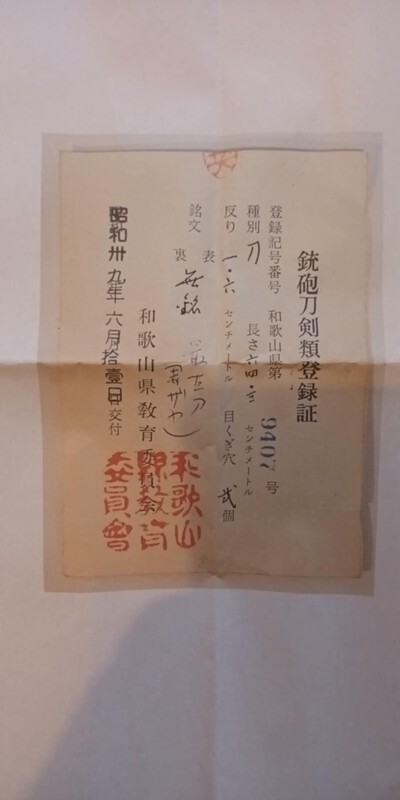 銃砲刀剣類登録証
登録記号番号 和歌山県第 9407 号
種別 刀 長さ 六四・三 センチメートル
反り 一・六 センチメートル 目くぎ穴 弐 個
銘文 表 無銘
裏
昭和卅九年六月拾壹日交付
和歌山県教育委員会
和歌山
縣教育
委員會